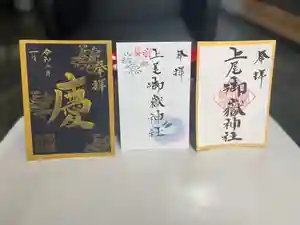 奉拝
慶
令和六年
一月
奉拝
上尾御嶽神社
奉拝
上尾御嶽神社